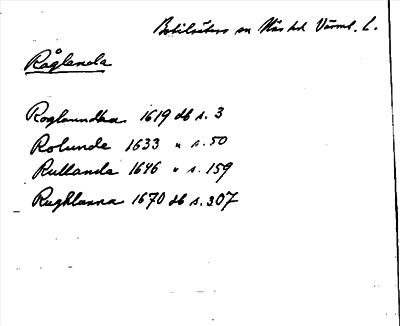 Botilsäters sn Näs hd Värml. L.
Råglanda
Roglaundha 1619 db s. 3
Rolunde 1633 " s. 50
Rullanda 1646 " s. 159
Rugklanna 1670 db s. 307